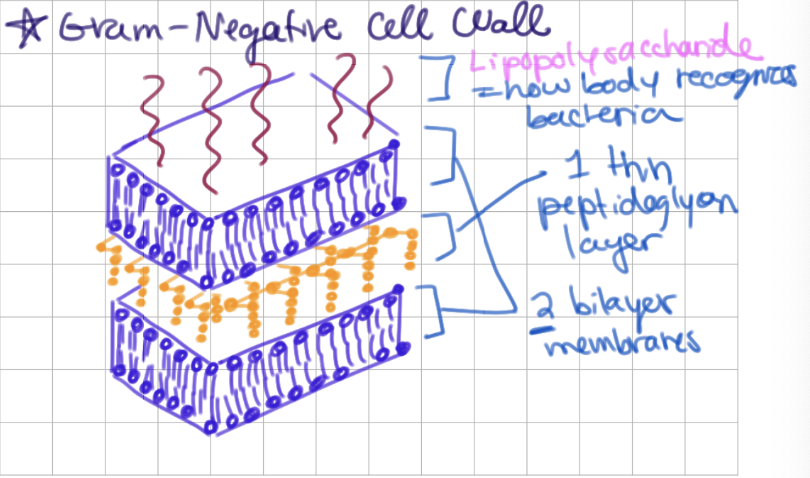 ☆ Gram-Negative Cell Wall
Lipopolysaccharide
= how body recognizes
bacteria
1 thin
peptidoglycan
layer
2 bilayer
membranes